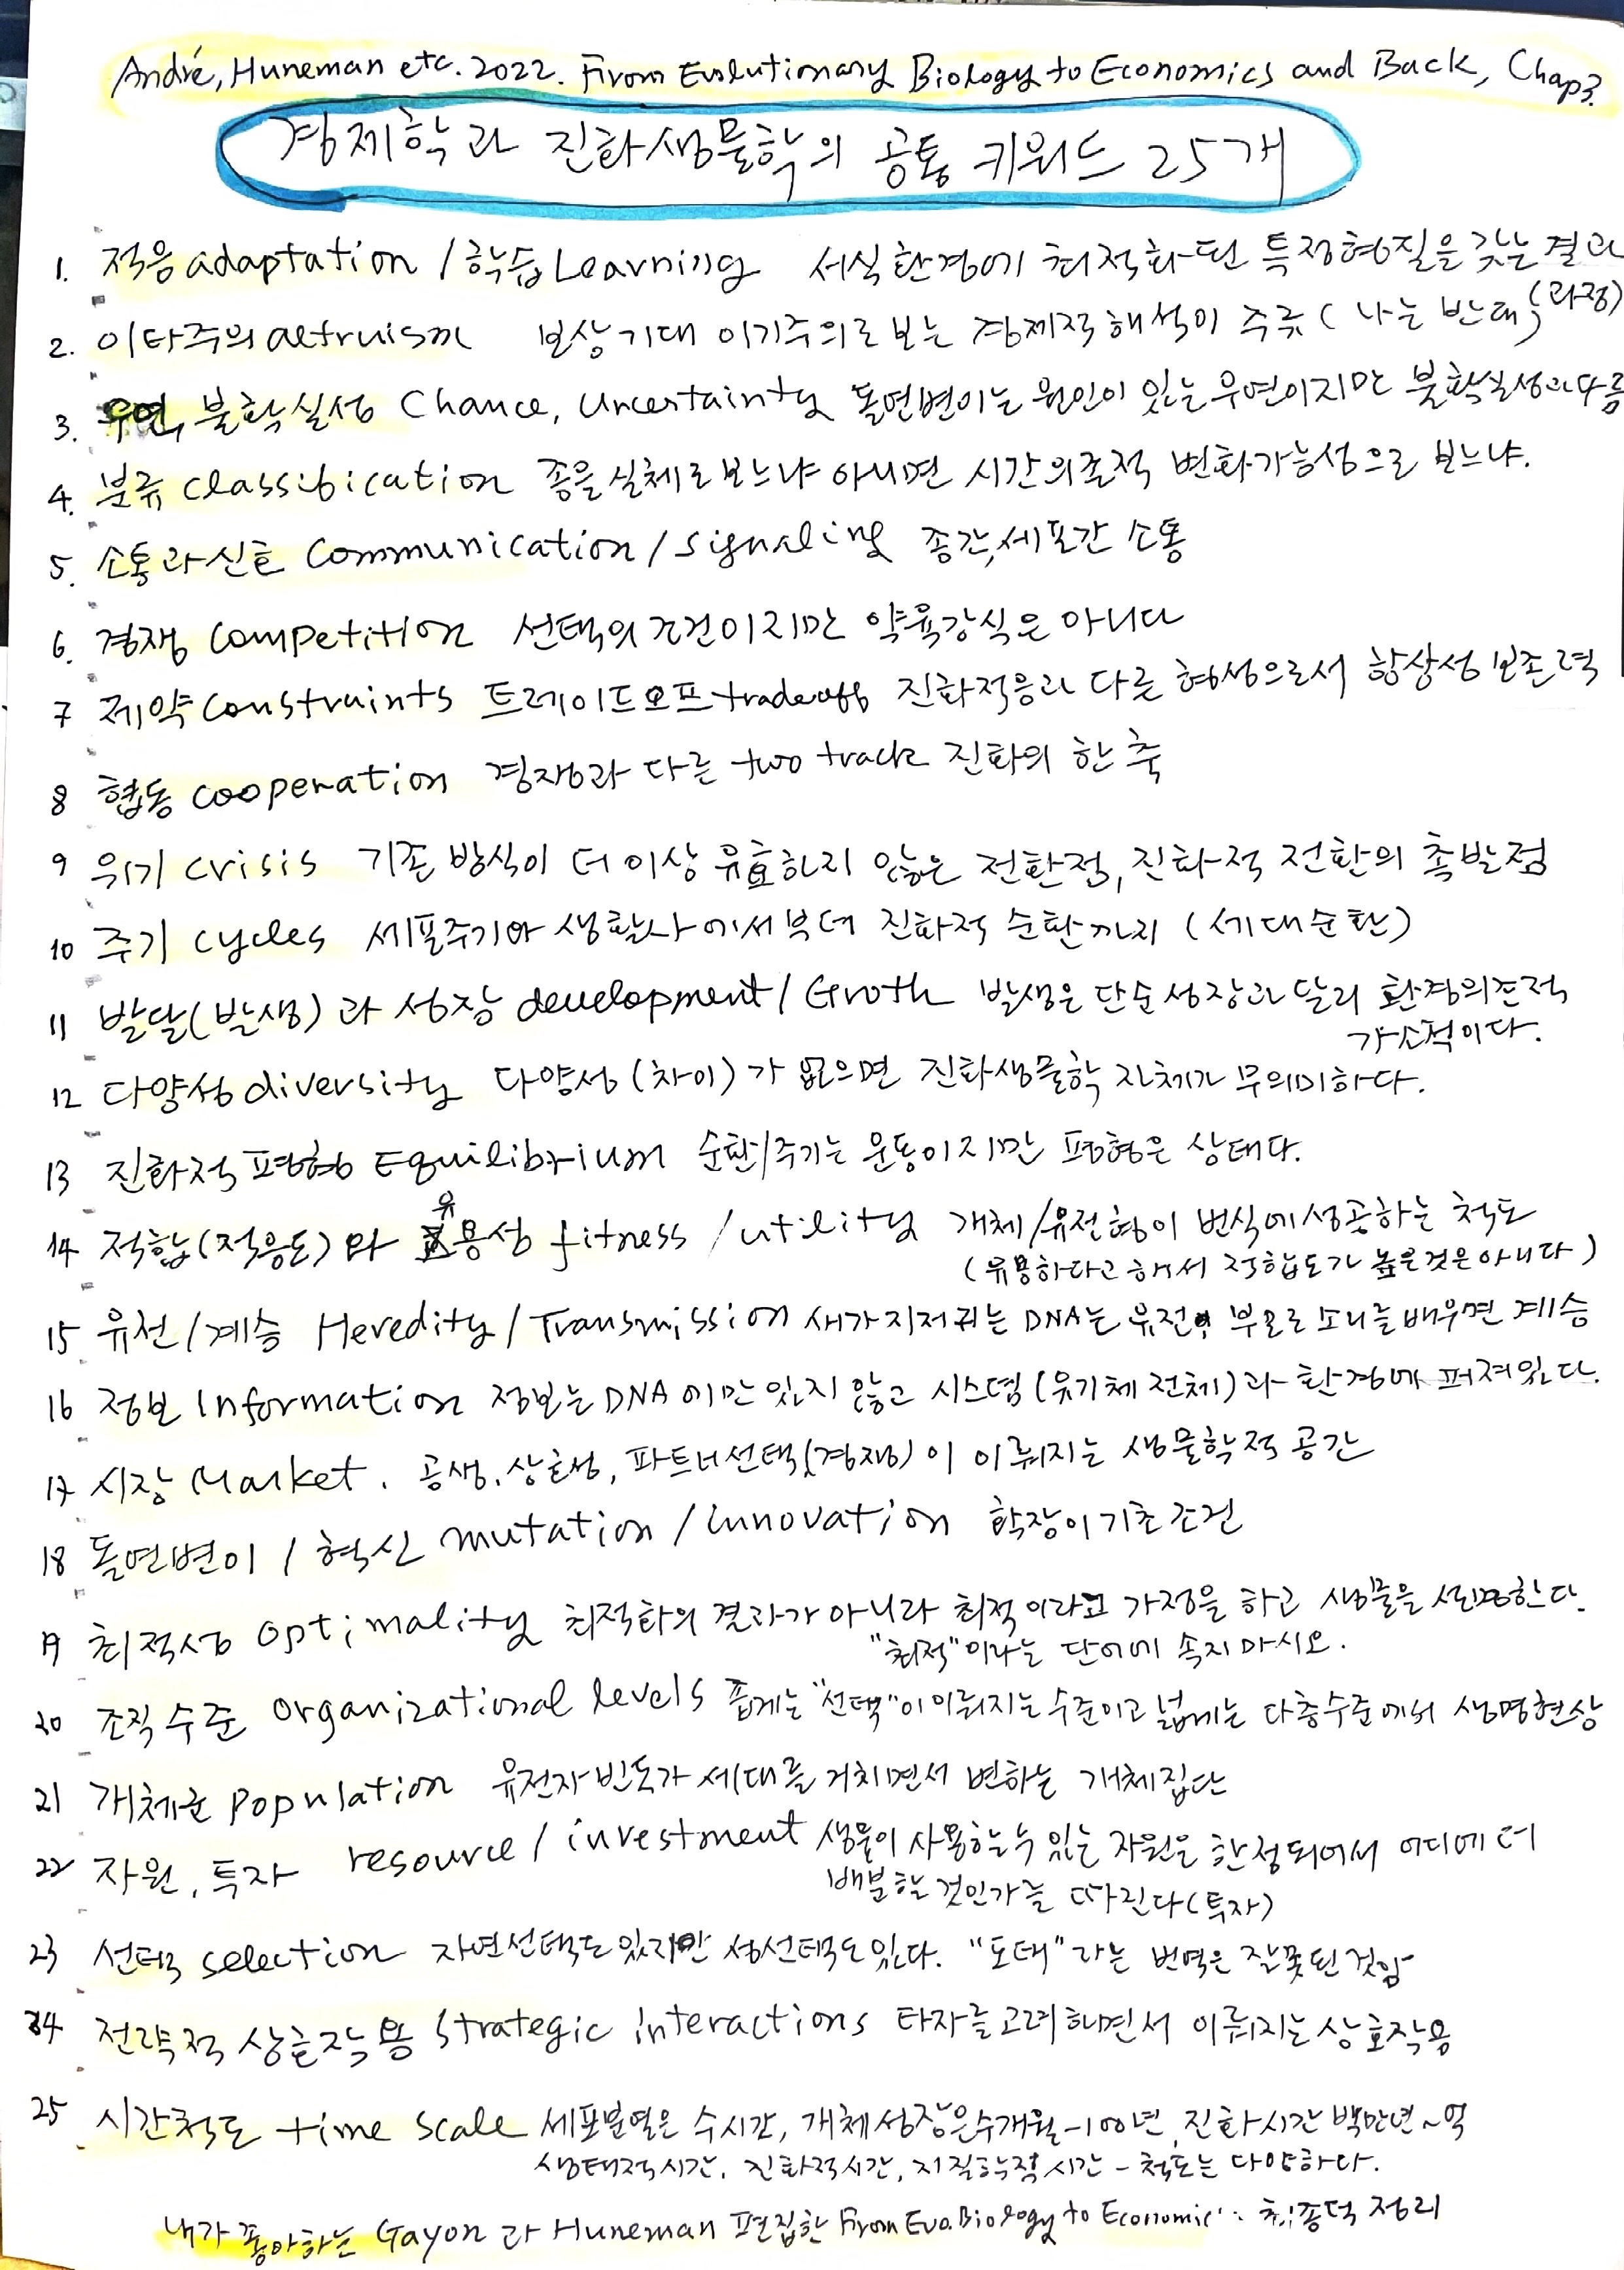 André, Huneman etc. 2022. From Evolutionary Biology to Economics and Back, Chap3.
경제학과 진화생물학의 공통 키워드 25개
1. 적응 adaptation / 학습 Learning 서식환경에 최적화된 특정형질을 갖는 결과
(과정)
2. 이타주의 altruism 보상기대 이기주의로 보는 경제적 해석이 주류 (나는 반대)
3. 우연, 불확실성 Chance, Uncertainty 돌연변이는 원인이 있는 우연이지만 불확실성과 다름
4. 분류 classification 종을 실체로 보느냐 아니면 시간의존적 변화가능성으로 보느냐.
5. 소통과 신호 Communication / signaling 종간, 세포간 소통
6. 경쟁 Competition 선택의 조건이지만 약육강식은 아니다
7 제약 constraints 트레이드오프 tradeoffs 진화적응과 다른 형성으로서 항상성 보존력
8 협동 cooperation 경쟁과 다른 two track 진화의 한 축
9 위기 crisis 기존 방식이 더 이상 유효하지 않은 전환점, 진화적 전환의 촉발점
10 주기 cycles 세포주기와 생활사에서부터 진화적 순환까지 (세대순환)
11 발달(발생)과 성장 development / Groth 발생은 단순성장과 달리 환경의존적
가소적이다.
12 다양성 diversity 다양성(차이)가 없으면 진화생물학 자체가 무의미하다.
13 진화적 평형 Equilibrium 순환/주기는 운동이지만 평형은 상태다.
14 적합(적응도)와 유용성 fitness / utility 개체/유전형이 번식에 성공하는 척도
(유용하다고 해서 적합도가 높은것은 아니다)
15 유전/계승 Heredity / Transmission 새가 지저귀는 DNA는 유전, 부모로 소리를 배우면 계승
16 정보 Information 정보는 DNA에만 있지 않고 시스템(유기체 전체)과 환경에 퍼져있다.
17 시장 Market. 공생, 상호성, 파트너선택(경쟁)이 이뤄지는 생물학적 공간
18 돌연변이 / 혁신 mutation / innovation 확장이 기초 조건
19 최적성 optimality 최적화의 결과가 아니라 최적이라고 가정을 하고 생물을 설명한다.
"최적"이라는 단어에 속지 마시오.
20 조직수준 organizational levels 좁게는 "선택"이 이뤄지는 수준이고 넓게는 다층수준에서 생명현상
21 개체군 population 유전자빈도가 세대를 거치면서 변하는 개체집단
22 자원, 투자 resource / investment 생물이 사용할 수 있는 자원은 한정되어서 어디에 더
배분할 것인가를 따진다(투자)
23 선택 selection 자연선택도 있지만 성선택도 있다. "도태"라는 번역은 잘못된 것임
24 전략적 상호작용 Strategic interactions 타자를 고려하면서 이뤄지는 상호작용
25 시간척도 time scale 세포분열은 수시간, 개체성장은 수개월-100년, 진화시간 백만년~억
생태적시간, 진화적시간, 지질학적 시간 - 척도는 다양하다.
내가 좋아하는 Gayon과 Huneman 편집한 From Evo.Biology to Economic.. 최종덕 정리